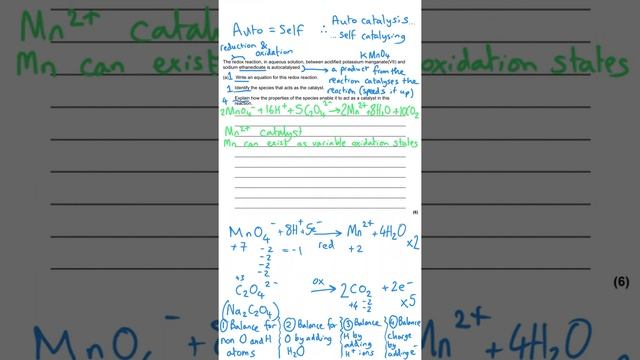 Auto = Self ∴ Auto catalysis...
...self catalysing
reduction & oxidation
KMnO₄
The redox reaction, in aqueous solution, between acidified potassium manganate(VII) and
sodium ethanedioate is autocatalysed
a product from the
reaction catalyses the
reaction (speeds it up)
(a) 1 Write an equation for this redox reaction.
1 Identify the species that acts as the catalyst.
4 Explain how the properties of the species enable it to act as a catalyst in this
reaction.
2MnO₄⁻ + 16H⁺ + 5C₂O₄²⁻ → 2Mn²⁺ + 8H₂O + 10CO₂
Mn²⁺ catalyst
Mn can exist as variable oxidation states
(6)
MnO₄⁻ + 8H⁺ + 5e⁻ → Mn²⁺ + 4H₂O x2
+7 -2 = -1 red +2
-2
-2
-2
+3
C₂O₄²⁻ ox → 2CO₂ + 2e⁻ x5
+4 -2 -2
(Na₂C₂O₄)
① Balance for
non O and H
atoms
② Balance for
O by adding
H₂O
③ Balance
H by
adding
H⁺ ions
④ Balance
charge
by
adding e⁻
Mn²⁺ catal
Mn can exis
xidation states
(6)
MnO₄
Mn²⁺ + 4H₂O